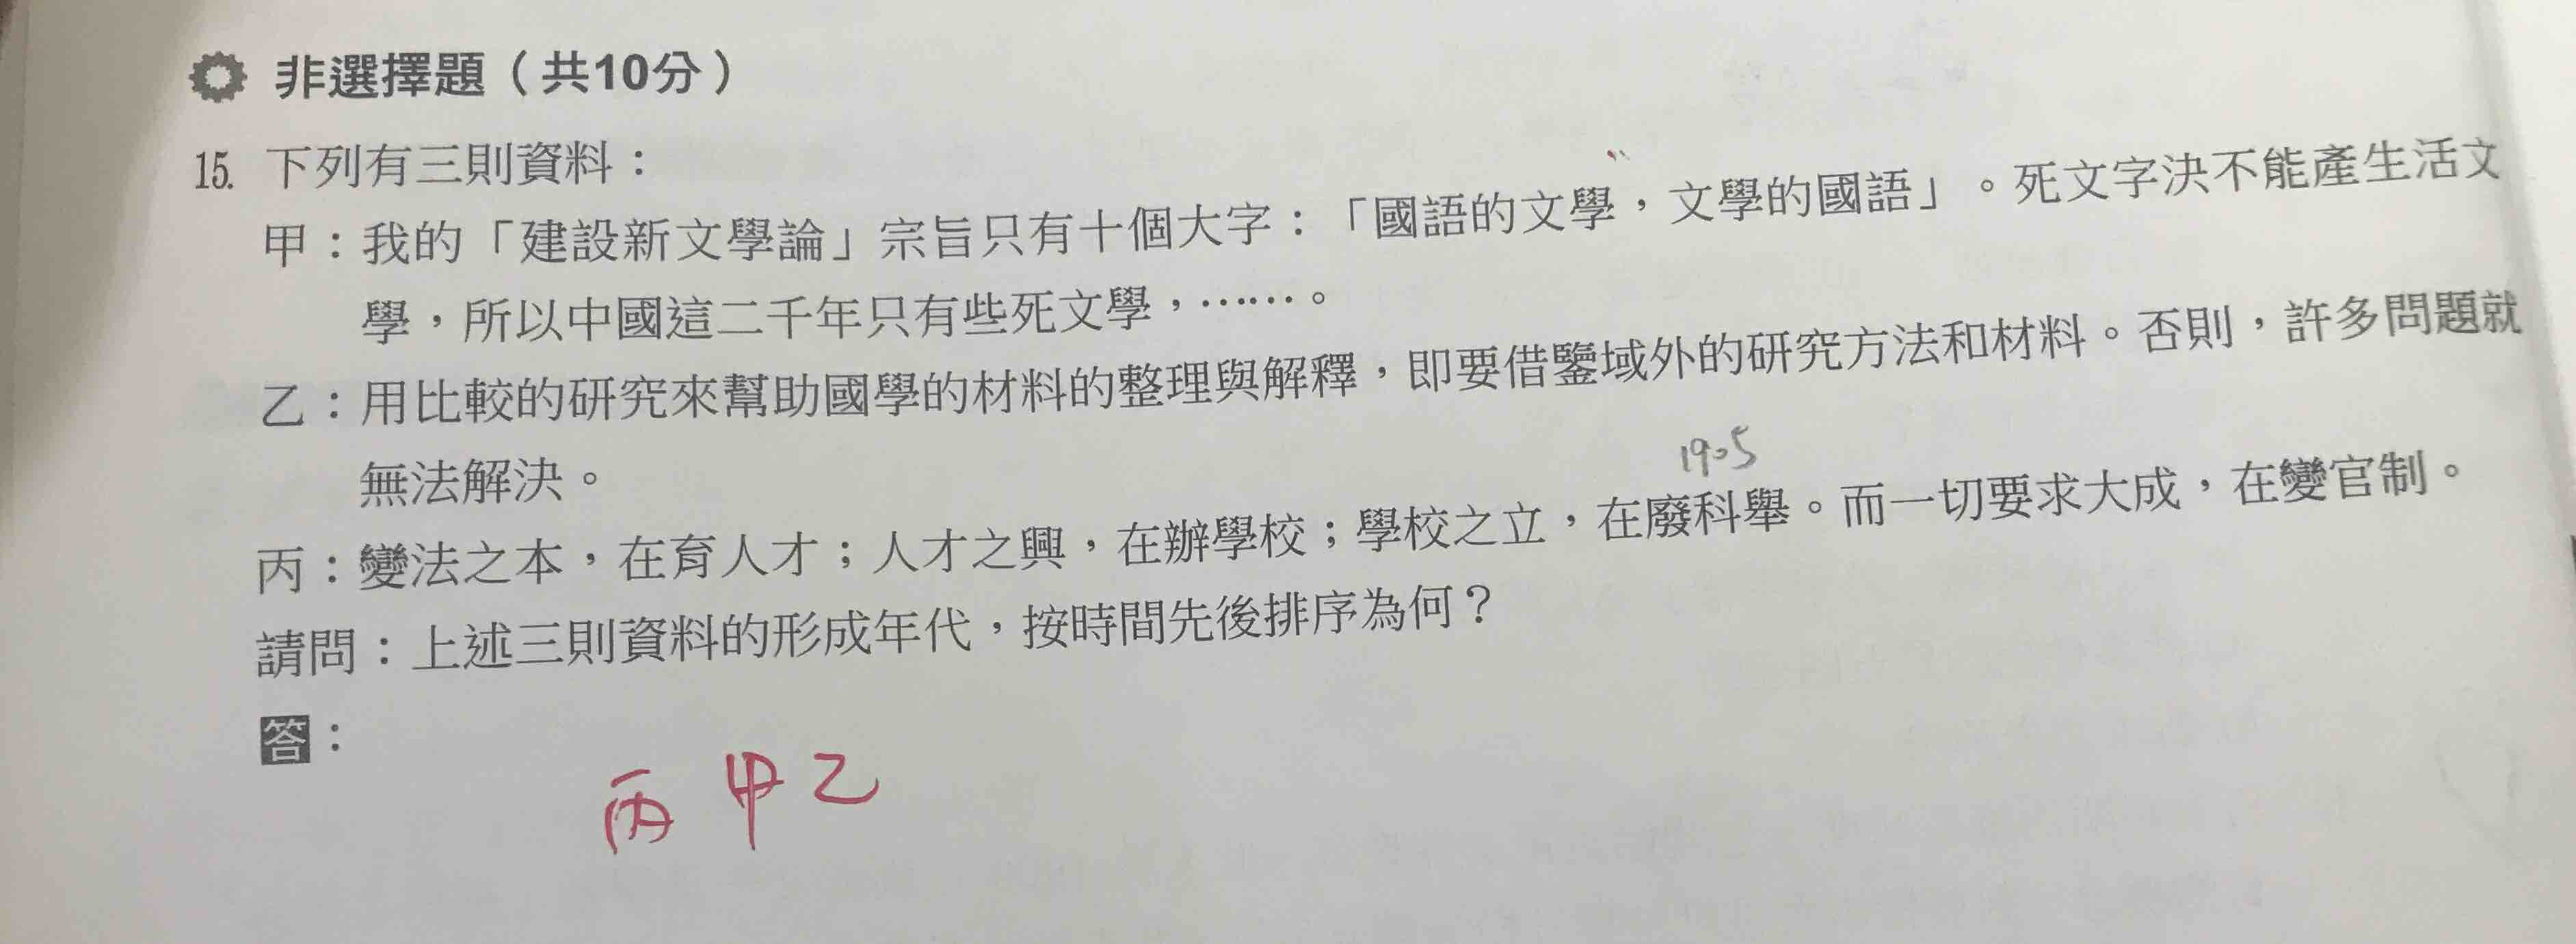 非選擇題（共10分）
15. 下列有三則資料：
甲：我的「建設新文學論」宗旨只有十個大字：「國語的文學，文學的國語」。死文字決不能產生活文
學，所以中國這二千年只有些死文學，……。
乙：用比較的研究來幫助國學的材料的整理與解釋，即要借鑒域外的研究方法和材料。否則，許多問題就
無法解決。
1905
丙：變法之本，在育人才；人才之興，在辦學校；學校之立，在廢科舉。而一切要求大成，在變官制。
請問：上述三則資料的形成年代，按時間先後排序為何？
答：
丙甲乙